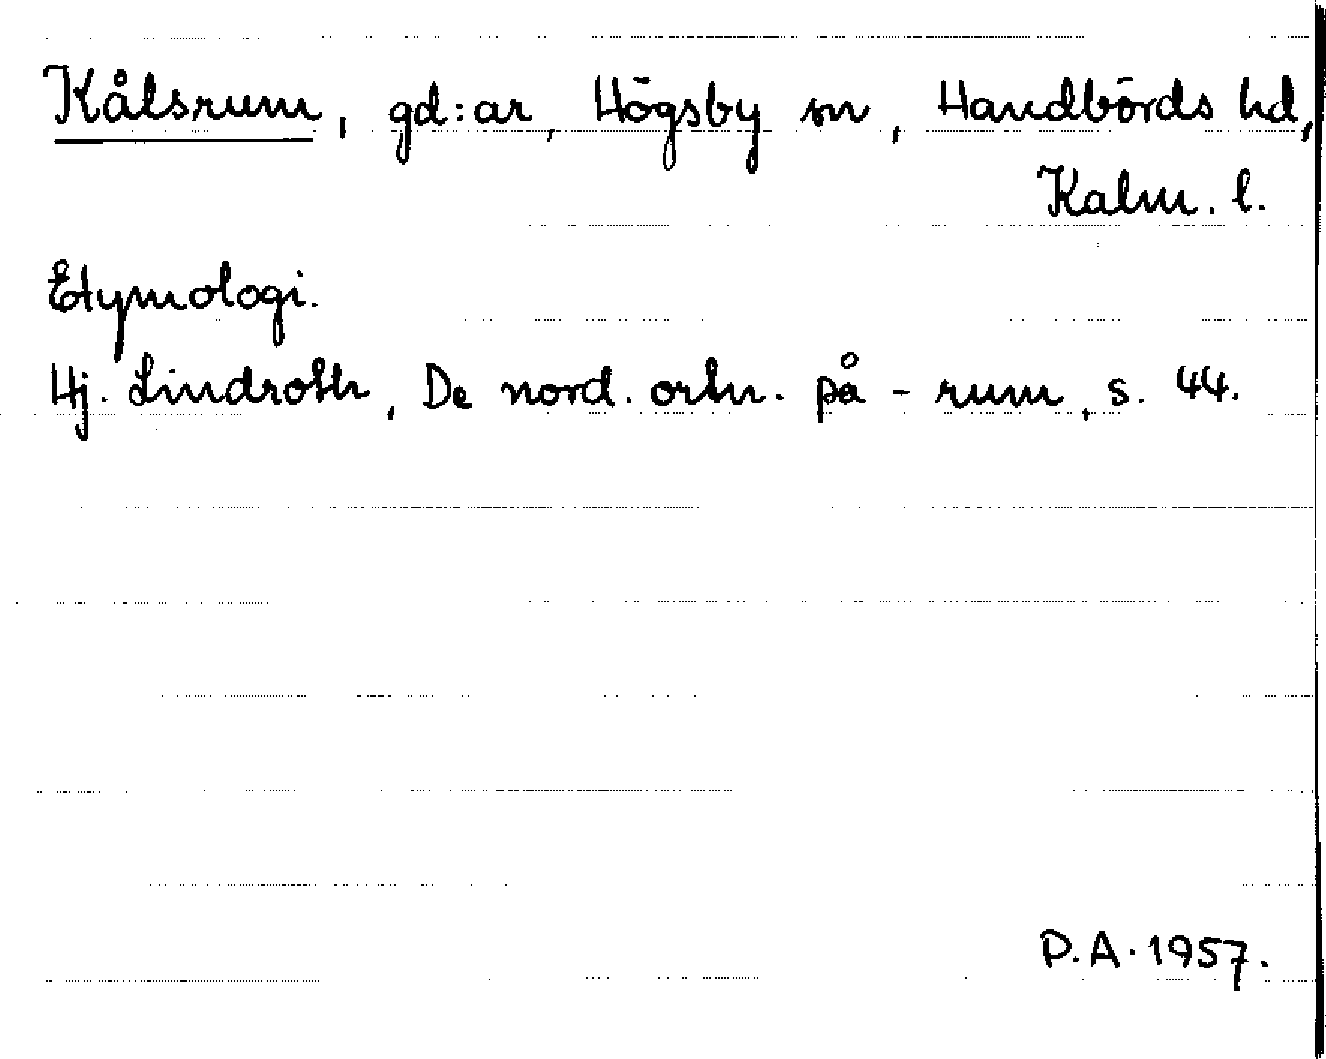 Kålsrum, gd:ar, Högsby sn, Handbörds hd,
Kalm. l.
Etymologi.
Hj. Lindroth, De nord. ortn. på -rum, s. 44.
P.A. 1957.